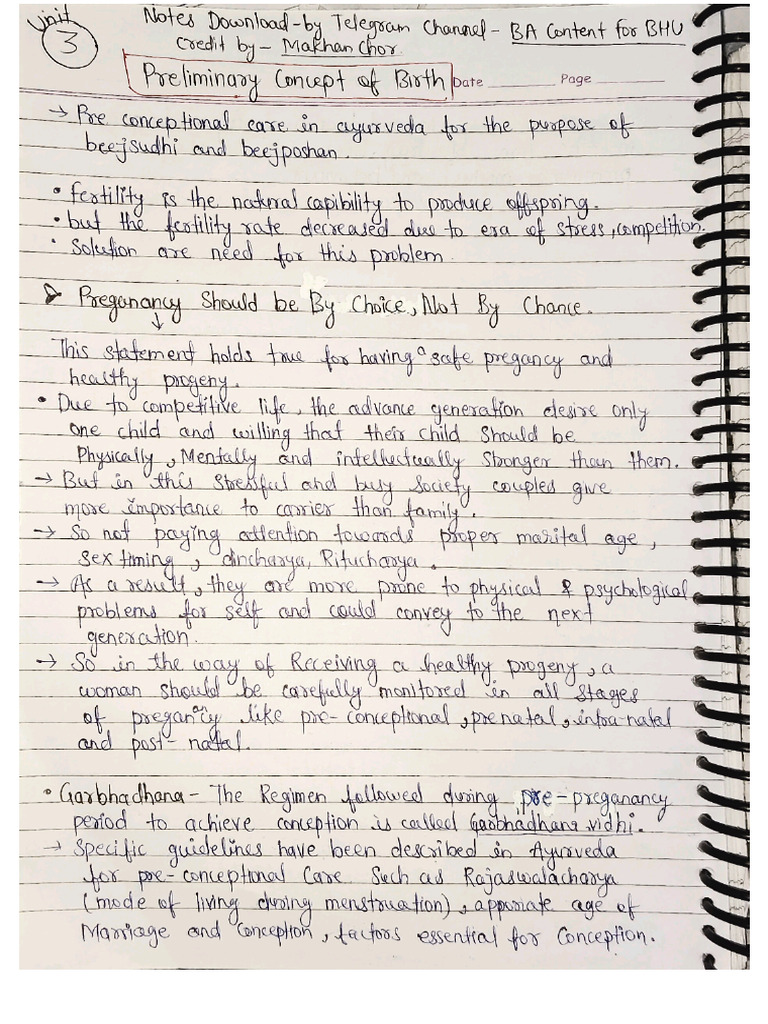 Unit 3
Notes Download-by Telegram Channel - BA Content for BHU
Credit by - Makhan Chor.
Preliminary Concept of Birth Date Page
→ Pre conceptional care in ayurveda for the purpose of
beejsudhi and beejposhan.
• fertility is the natural capibility to produce offspring.
• but the fertility rate decreased due to era of stress, competition.
• Solution are need for this problem.
➢ Preganancy Should be By Choice, Not By Chance.
↓
This statement holds true for having a safe pregancy and
healthy progeny.
• Due to competitive life, the advance generation desire only
one child and willing that their child should be
Physically, Mentally and intellectually stronger than them.
→ But in this stressful and busy society couples give
more importance to carrier than family.
→ So not paying attention towards proper marital age,
sex timing, dincharya, Ritucharya.
→ As a result, they are more prone to physical & psychological
problems for self and could convey to the next
generation.
→ So in the way of Receiving a healthy progeny, a
woman should be carefully monitored in all stages
of pregancy an like pre-conceptional, prenatal, intra-natal
and post-natal.
• Garbhadhana - The Regimen followed during pre-preganancy
period to achieve conception is called Garbhadhana vidhi.
→ Specific guidelines have been described in Ayurveda
for pre-conceptional Care Such as Rajaswalacharya
(mode of living during menstruation), appriate age of
Marriage and Conception, factors essential for Conception.